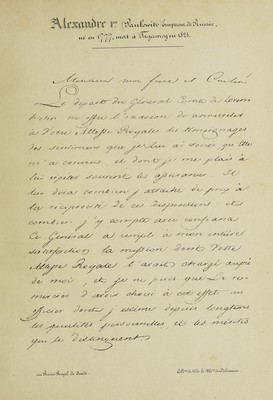 Alexandre 1er (Paulowitz) Empereur de Russie,
né en 1777, mort à Taganrog en 1825.
Monsieur mon frère et Cousin!
Le départ du Général Comte de
m'offre l'occasion de renouveler
à Votre Altesse Royale les témoignages
des sentimens que je lui ai voués, qu'Elle
m'a connus, et dont je me plais à
lui répéter souvent les assurances. Il
lui dira combien j'attache de prix à
la réciprocité de ces dispositions et
combien j'y compte avec confiance
Ce Général a rempli à mon entière
satisfaction la mission dont Votre
Altesse Royale l'avait chargé auprès
de moi, et je ne puis que La re-
mercier d'avoir choisi à cet effet un
officier dont j'estime depuis longtems
les qualités personnelles, et les mérites
qui le distinguent.
au Prince Royal de Suède.